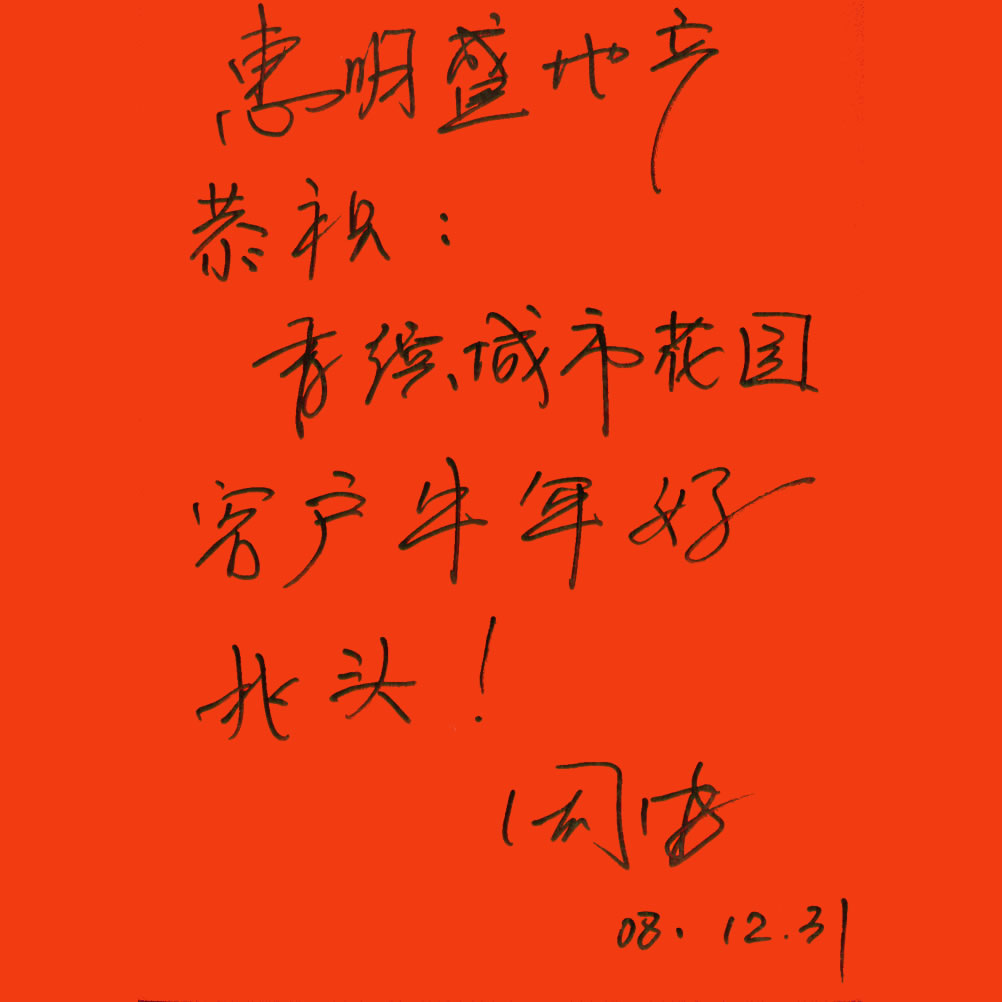 惠明盛地产
恭祝:
青缤城市花园
客户牛年好
兆头!
周波
08.12.31